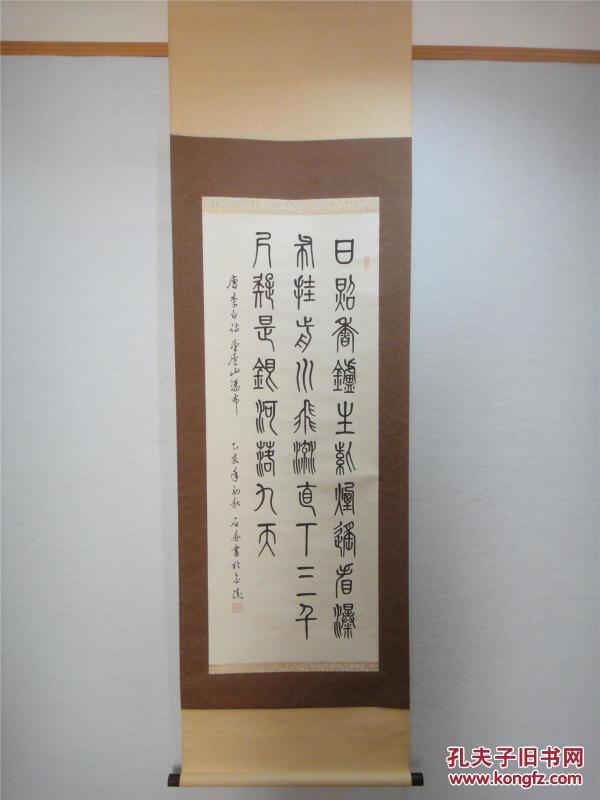 日照香鑪生紫煙遙看瀑
布挂前川飛流直下三千
尺疑是銀河落九天
唐李白诗望廬山瀑布 乙亥年初秋 石舟書於金陵
孔夫子旧书网
www.kongfz.com